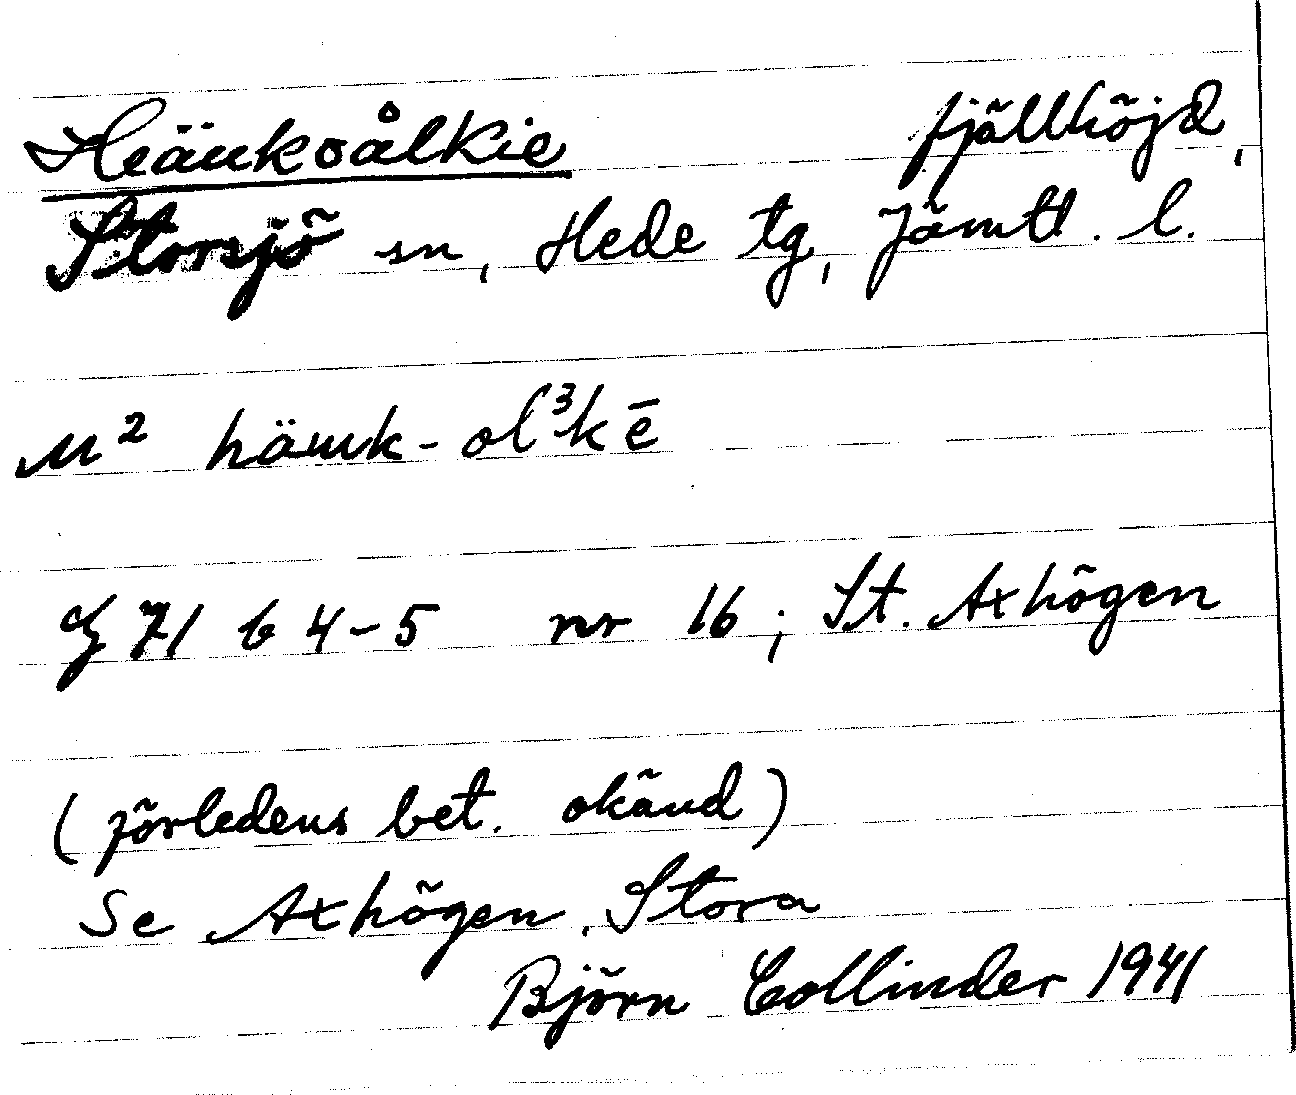 Heäŋkoålkie fjällhöjd,
Storsjö sn, Hede tg, Jämtl. l.
M² häwk-ol³kē
G 71 b 4-5 nr 16; St. Axhögen
(förledens bet. okänd)
Se Axhögen, Stora
Björn Collinder 1941